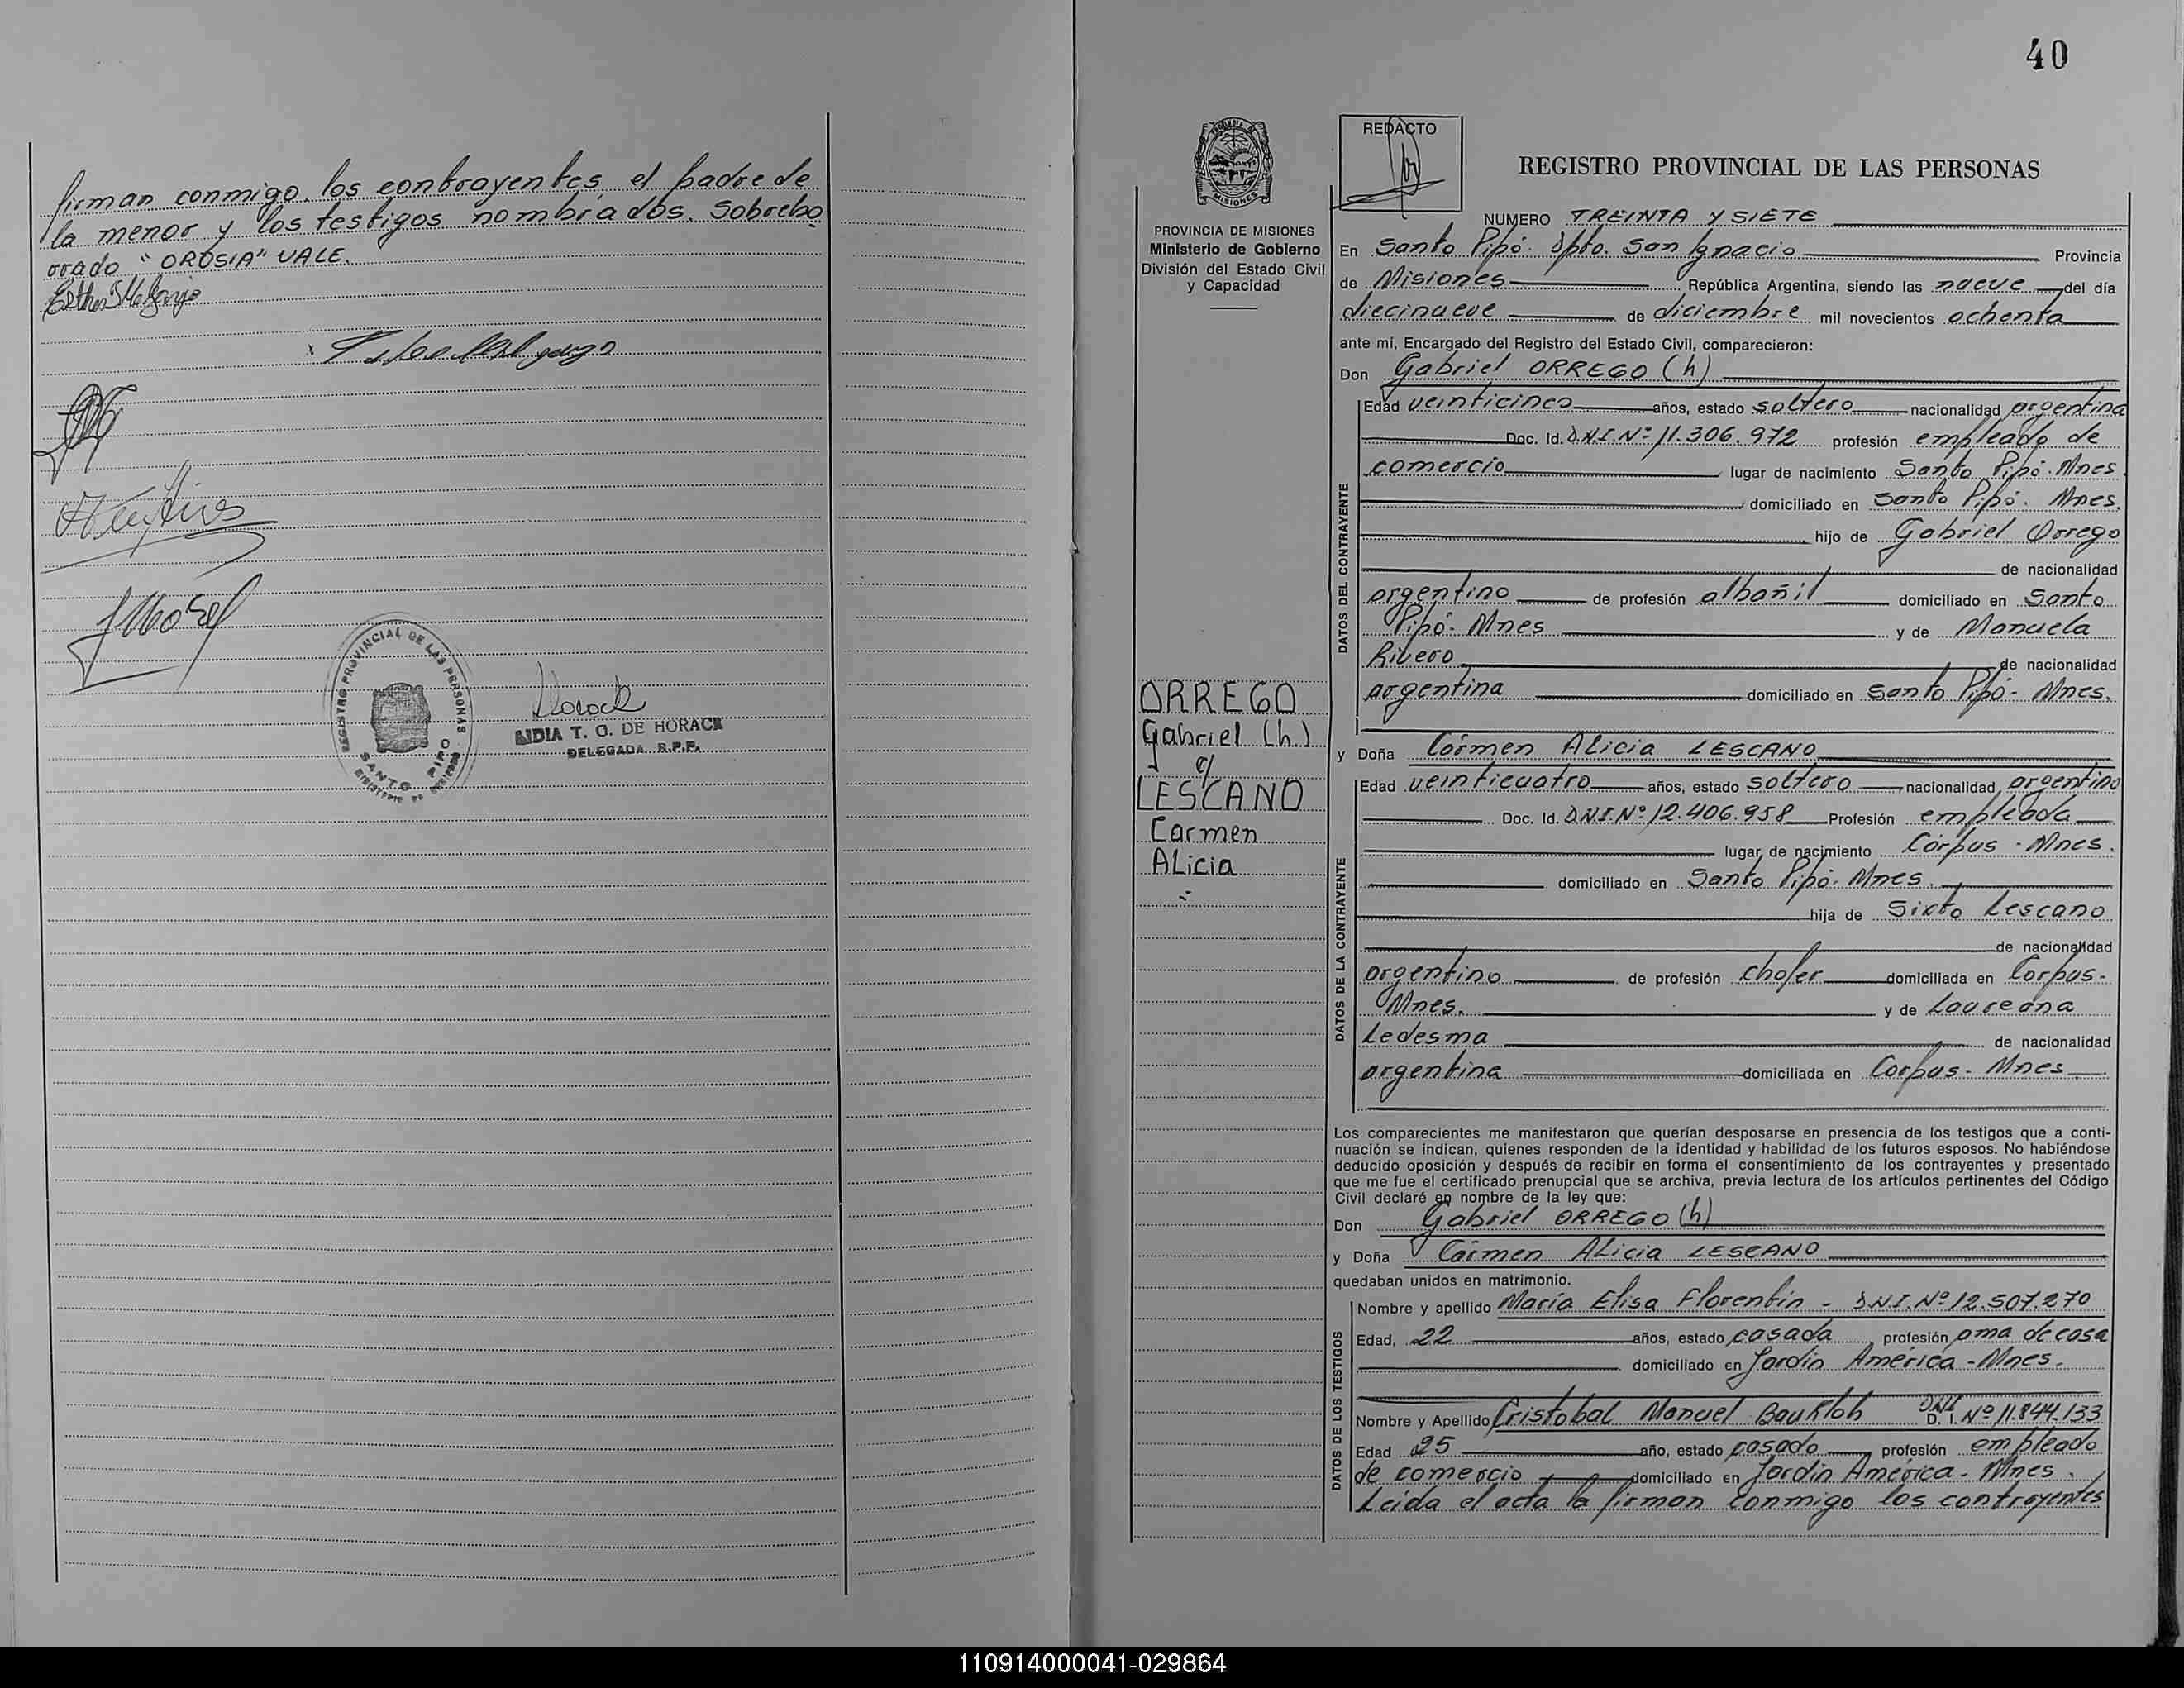 firman conmigo, los contrayentes, el padre de
la menor y los testigos nombrados. Sobrebo
rrado "OROSIA" VALE.
REGISTRO PROVINCIAL DE LAS PERSONAS
SANTO PIPO
LIDIA T. G. DE HORACK
DELEGADA R.P.P.
40
REDACTO
REGISTRO PROVINCIAL DE LAS PERSONAS
MISIONES
PROVINCIA DE MISIONES
Ministerio de Gobierno
División del Estado Civil
y Capacidad
ORREGO
Gabriel (h.)
c/
LESCANO
Carmen
Alicia
NUMERO TREINTA Y SIETE
En Santo Pipó. Dpto. San Ignacio Provincia
de Misiones República Argentina, siendo las nueve del día
diecinueve de diciembre mil novecientos ochenta
ante mí, Encargado del Registro del Estado Civil, comparecieron:
Don Gabriel ORREGO (h)
DATOS DEL CONTRAYENTE
Edad veinticinco años, estado soltero nacionalidad argentina
Doc. Id. D.N.I. Nº 11.306.972 profesión empleado de
comercio lugar de nacimiento Santo Pipó. Mnes.
domiciliado en Santo Pipó. Mnes.
hijo de Gabriel Orrego
de nacionalidad
argentino de profesión albañil domiciliado en Santo
Pipó- Mnes y de Manuela
Rivero de nacionalidad
argentina domiciliado en Santo Pipó- Mnes.
y Doña Carmen Alicia LESCANO
DATOS DE LA CONTRAYENTE
Edad veinticuatro años, estado soltero nacionalidad argentino
Doc. Id. D.N.I. Nº 12.406.958 Profesión empleada
lugar de nacimiento Corpus - Mnes.
domiciliado en Santo Pipó- Mnes.
hija de Sixto Lescano
de nacionalidad
argentino de profesión chofer domiciliada en Corpus-
Mnes. y de Laureana
Ledesma de nacionalidad
argentina domiciliada en Corpus- Mnes
Los comparecientes me manifestaron que querían desposarse en presencia de los testigos que a conti-
nuación se indican, quienes responden de la identidad y habilidad de los futuros esposos. No habiéndose
deducido oposición y después de recibir en forma el consentimiento de los contrayentes y presentado
que me fue el certificado prenupcial que se archiva, previa lectura de los artículos pertinentes del Código
Civil declaré en nombre de la ley que:
Don Gabriel ORREGO (h)
y Doña Carmen Alicia LESCANO
quedaban unidos en matrimonio.
DATOS DE LOS TESTIGOS
Nombre y apellido María Elisa Florentin - D.N.I. Nº 12.507.270
Edad, 22 años, estado casada profesión ama de casa
domiciliado en Jardín América - Mnes.
Nombre y Apellido Cristobal Manuel Baukloh DNI D. I. Nº 11.844.133
Edad 25 año, estado casado profesión empleado
de comercio domiciliado en Jardín América - Mnes.
Leida el acta la firman conmigo los contrayentes
110914000041-029864